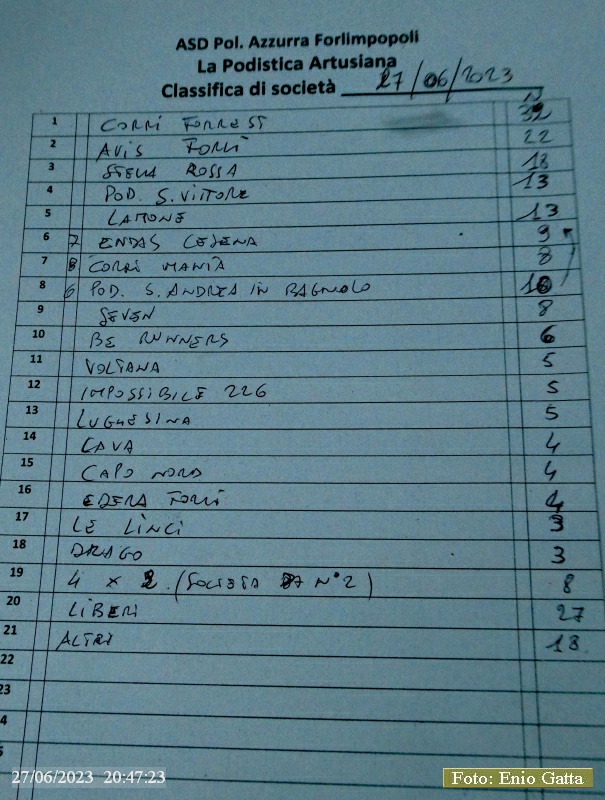 ASD Pol. Azzurra Forlimpopoli
La Podistica Artusiana
Classifica di società 27/06/2023
1 CORRI FORREST
2 AVIS FORLÌ 22
3 STELLA ROSSA 18
4 POD. S. VITTORE 13
5 LAMONE 13
6 7 ENDAS CESENA 9
7 8 CORRI MANIA 8
8 6 POD. S. ANDREA IN BAGNOLO 10
9 SEVEN 8
10 BE RUNNERS 6
11 VOLTANA 5
12 IMPOSSIBILE 226 5
13 LUGHESINA 5
14 CAVA 4
15 CAPO NORD 4
16 EDERA FORLÌ 4
17 LE LINCI 3
18 DRAGO 3
19 4 x 2 (SOCIETA N°2) 8
20 LIBERI 27
21 ALTRI 18
22
23
4
5
27/06/2023 20:47:23
Foto: Enio Gatta